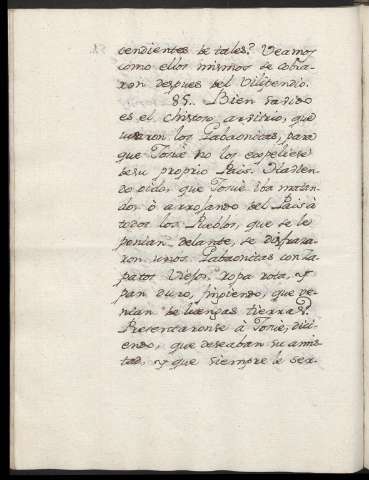 cendientes de tales? Veamos
como ellos mismos se cobra-
ron despues del Vilipendio.
85.. Bien savido
es el chistoso arvitrio, que
usaron los Gabaonitas, para
que Josuè no los expeliese
de su proprio Pais. Haviendo
oido, que Josuè iba matan-
do, ò arrojando del Pais à
todos los Pueblos, que se le
ponian delante, se disfraza-
ron unos Gabaonitas con Za-
patos Viejos, ropa rota, y
pan duro, finjiendo, que ve-
nian de luengas tierras.
Presentaronse à Josuè, dici-
endo, que deseaban su amis-
tad, y que siempre le ser-